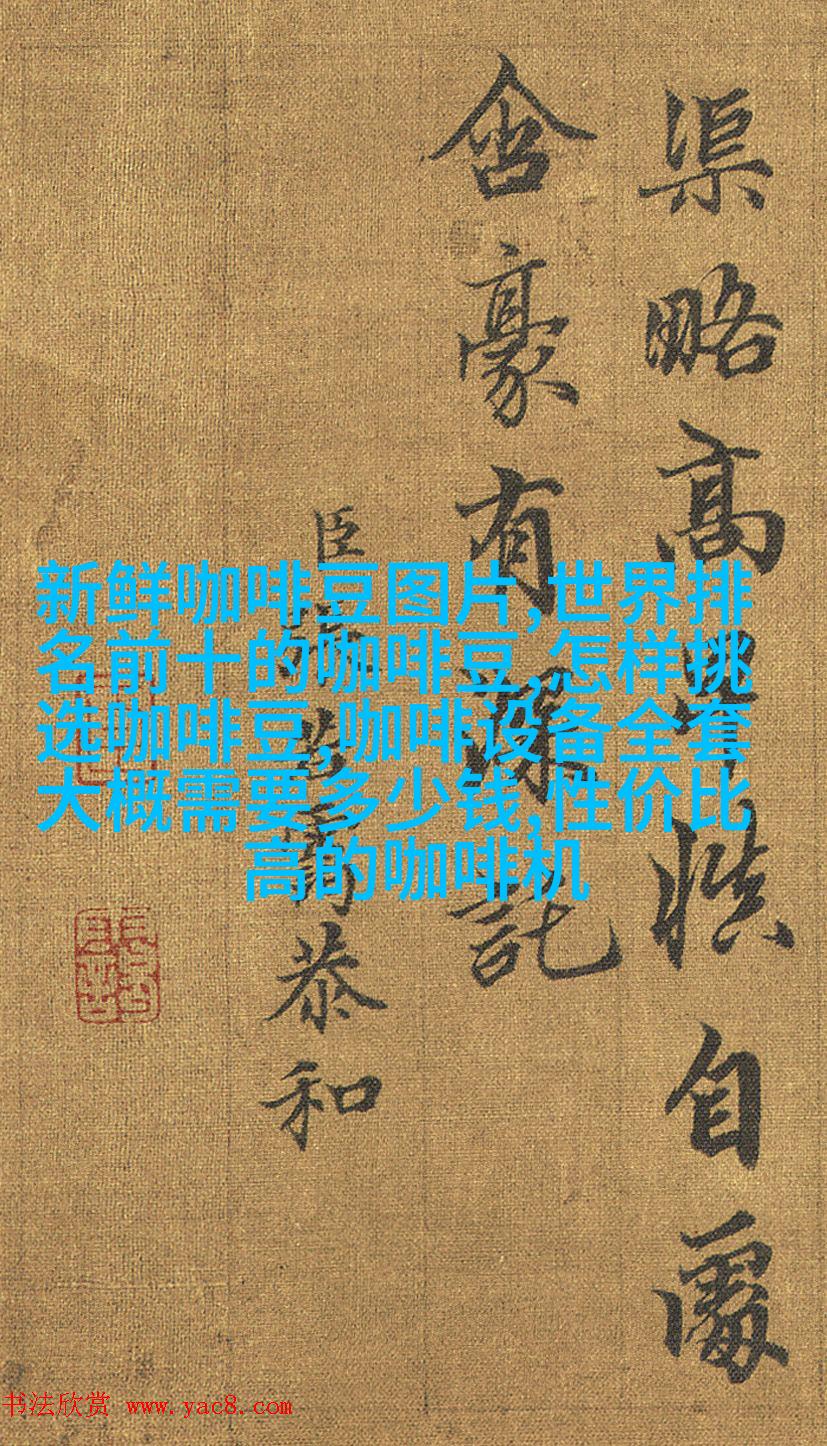 渠略高慎自處
含豪有深託
臣若靄恭和
新鲜咖啡豆图片,世界排
名前十的咖啡豆,怎样挑
选咖啡豆,咖啡设备全套
大概需要多少钱,性价比
高的咖啡机
书法欣赏 www.yac8.com